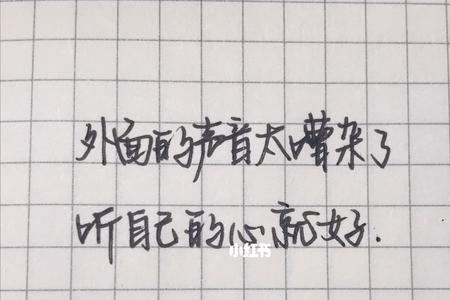 外面的声音太嘈杂了
听自己的心就好.
小红书